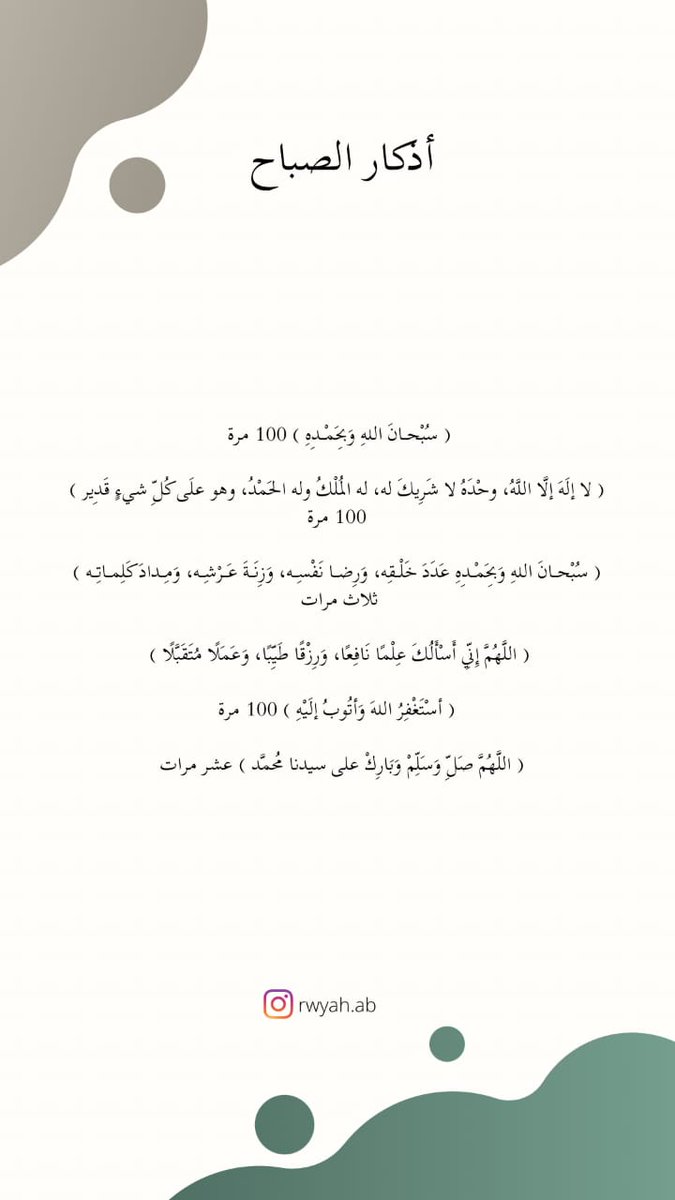 أذكار الصباح
( سُبْحـانَ اللهِ وَبِحَمْـدِهِ ) 100 مرة
( لا إلَهَ إلَّا اللَّهُ، وحْدَهُ لا شَرِيكَ له، له المُلْكُ وله الحَمْدُ، وهو علَى كُلِّ شيءٍ قَدِير )
100 مرة
( سُبْحـانَ اللهِ وَبِحَمْـدِهِ عَدَدَ خَلْـقِه، وَرِضـا نَفْسِـه، وَزِنَـةَ عَـرْشِـه، وَمِـدادَ كَلِمـاتِـه )
ثلاث مرات
( اللَّهُمَّ إِنِّي أَسْأَلُكَ عِلْمًا نَافِعًا، وَرِزْقًا طَيِّبًا، وَعَمَلًا مُتَقَبَّلًا )
( أسْتَغْفِرُ اللهَ وَأتُوبُ إلَيْهِ ) 100 مرة
( اللَّهُمَّ صَلِّ وَسَلِّمْ وَبَارِكْ على سيدنا مُحمَّد ) عشر مرات
rwyah.ab